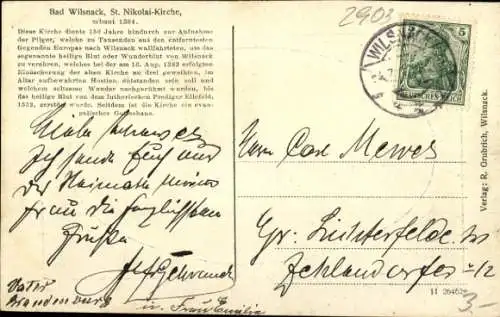 2903
Bad Wilsnack, St. Nikolai-Kirche,
erbaut 1384.
Diese Kirche diente 150 Jahre hindurch zur Aufnahme
der Pilger, welche zu Tausenden aus den entferntesten
Gegenden Europas nach Wilsnack wallfahrteten, um das
sogenannte heilige oder Wunderblut von Wilsnack
zu verehren, welches bei der am 16. Aug. 1383 erfolgten
Einäscherung der alten Kirche an drei geweihten, im
Altar aufbewahrten Hostien, entstanden sein soll und
welchem seltsame Wunder nachgerühmt wurden, bis
das heilige Blut von dem lutherischen Prediger Ellefeld,
1552, zerstört wurde. Seitdem ist die Kirche ein evan-
gelisches Gotteshaus.
Ich sende Euch aus
der Heimath meiner
Frau die
Grüßen
u. Frau
Vater
Brandenburg
WILSNACK
5
DEUTSCHES REICH
Herrn Carl Mewes
Gr. Lichterfelde W
Zehlendorferstr. 12
Verlag: R. Grubrich, Wilsnack.
3-